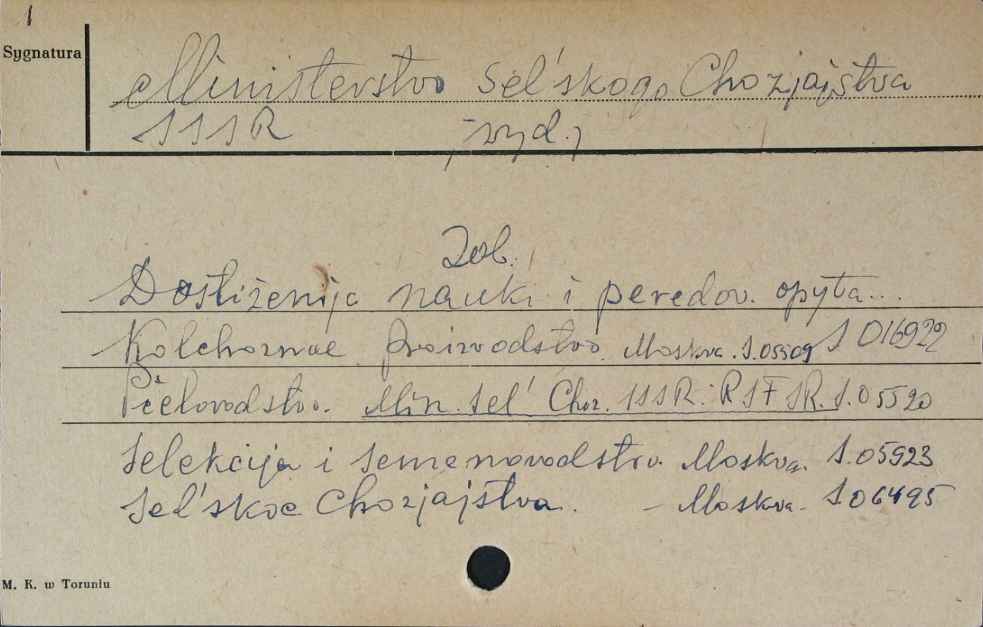 1
Sygnatura
Ministerstvo Sel'skogo Chozjajstva
SSSR /wyd./
Zob.
Dostiženija nauki i peredov. opyta...
Kolchoznoe proizvodstvo. Moskva. S.05509 S 016922
Pčelovodstvo. Min. Sel' Choz. SSSR. RSFSR. S.05520
Selekcija i semenovodstvo. Moskva. S.05923
Sel'skoe Chozjajstva. - Moskva. S.06495
M. K. w Toruniu